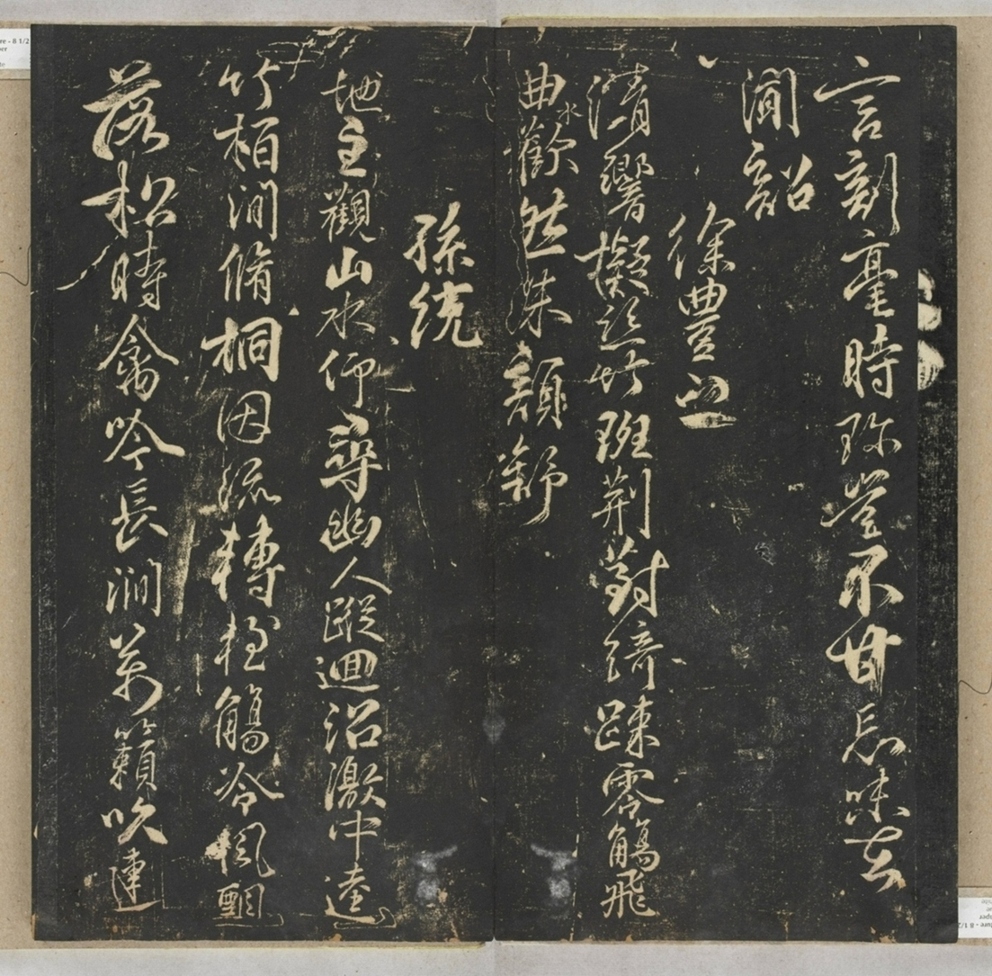 言刻毫時珍豈不甘忘味在
聞韶
徐豐之
清響擬絲竹班荊對綺疎零觴飛
曲水歡然朱顏舒
孫統
地主觀山水仰尋幽人蹤迴沼激中逵
竹柏澗脩桐因流轉輕觴冷風飄
落松時禽吟長澗萬籟吹連